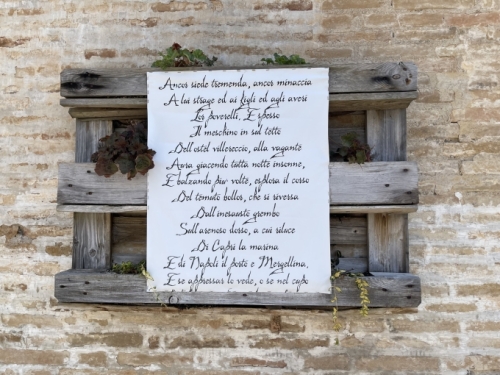 Ancor siede tremenda, ancor minaccia
A lui strage ed ai figli ed agli averi
Lor poverelli. E spesso
Il meschino in sul tetto
Dell'ostel villereccio, alla vagante
Aura giacendo tutta notte insonne,
E balzando piu' volte, esplora il corso
Del temuto bollor, che si riversa
Dall'inesausto grembo
Sull'arenoso dosso, a cui riluce
Di Capri la marina
E di Napoli il porto e Mergellina.
E se appressar lo vede, o se nel cupo